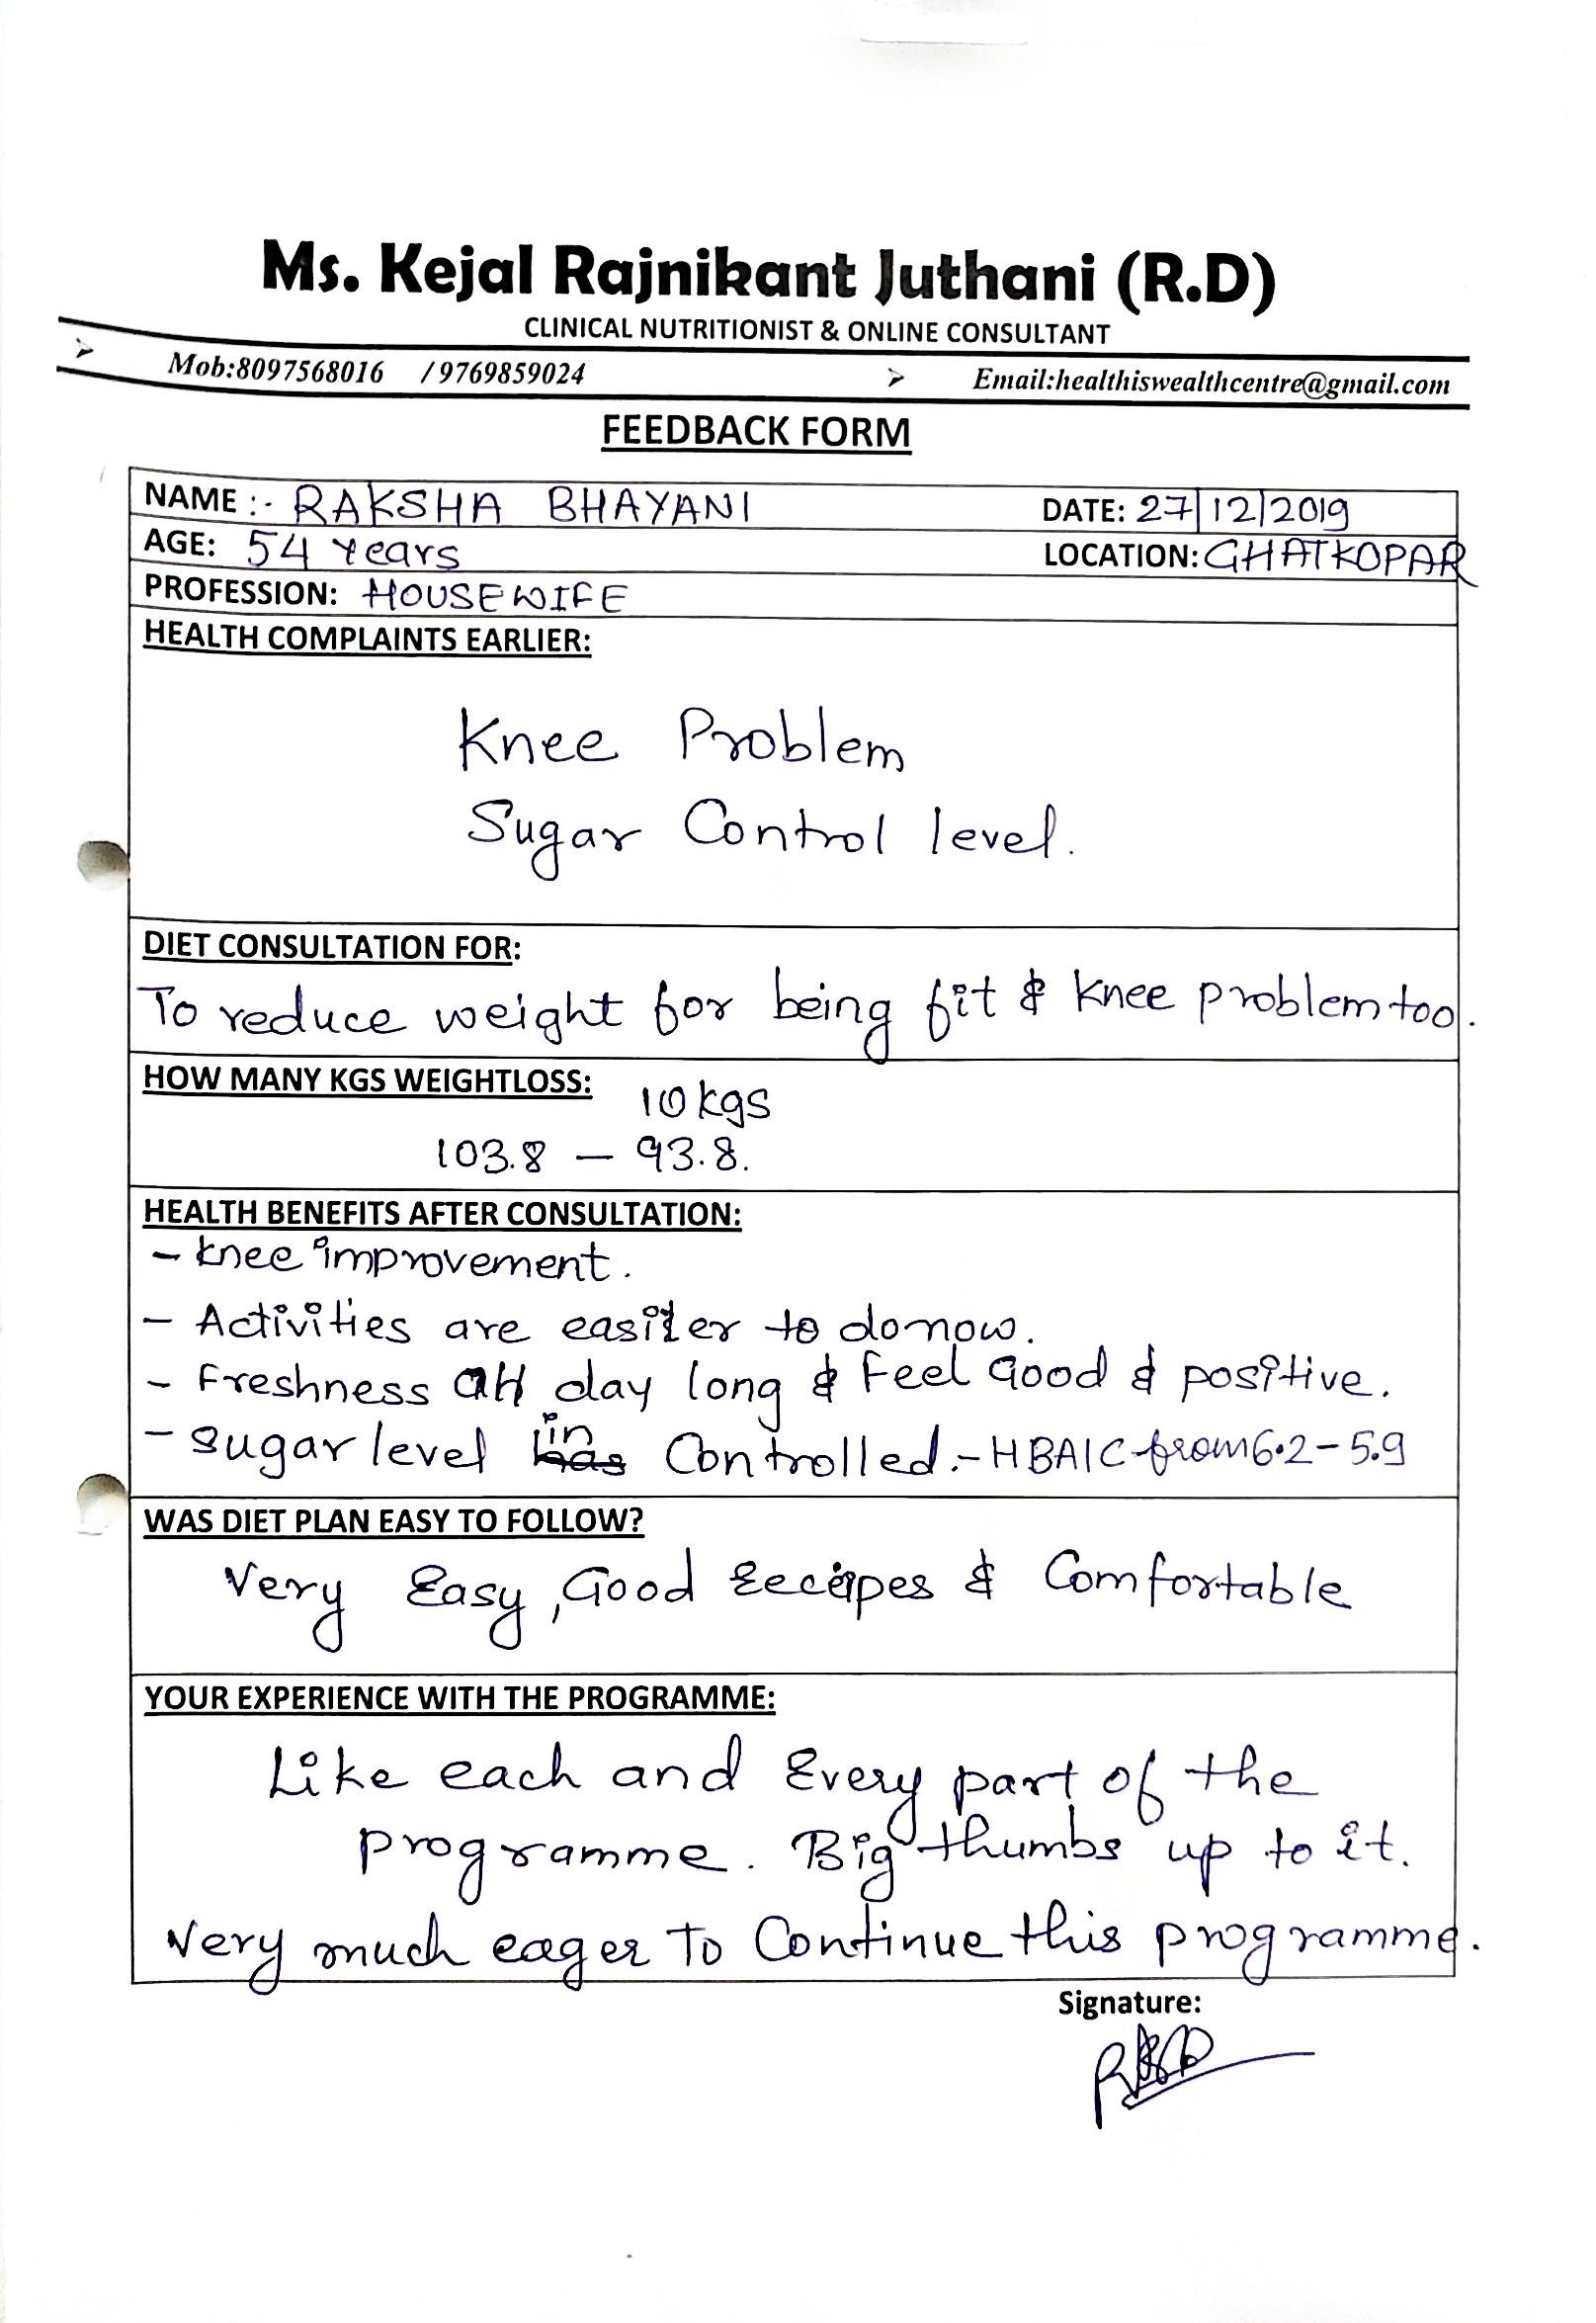 Ms. Kejal Rajnikant Juthani (R.D)
CLINICAL NUTRITIONIST & ONLINE CONSULTANT
➢ Mob:8097568016 / 9769859024 ➢ Email:healthiswealthcentre@gmail.com
FEEDBACK FORM
NAME :- RAKSHA BHAYANI DATE: 27/12/2019
AGE: 54 Years LOCATION: GHATKOPAR
PROFESSION: HOUSEWIFE
HEALTH COMPLAINTS EARLIER:
Knee Problem
Sugar Control level.
DIET CONSULTATION FOR:
To reduce weight for being fit & knee problem too.
HOW MANY KGS WEIGHTLOSS: 10 kgs
103.8 – 93.8.
HEALTH BENEFITS AFTER CONSULTATION:
- knee improvement.
- Activities are easier to do now.
- Freshness all day long & Feel Good & positive.
- Sugar level in Controlled.- HBA1C from 6.2 - 5.9
WAS DIET PLAN EASY TO FOLLOW?
Very Easy, Good Receipes & Comfortable
YOUR EXPERIENCE WITH THE PROGRAMME:
Like each and Every part of the
programme. Big thumbs up to it.
Very much eager To Continue this programme.
Signature: